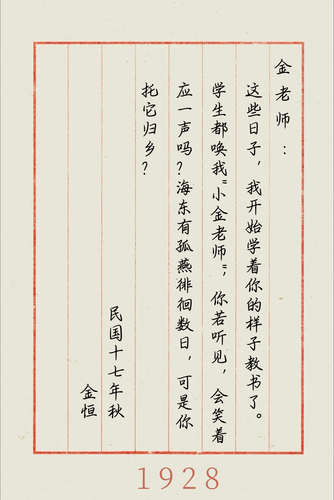 金老师：
这些日子，我开始学着你的样子教书了。
学生都唤我“小金老师”，你若听见，会笑着
应一声吗？海东有孤燕徘徊数日，可是你
托它归乡？
民国十七年秋
金恒
1928